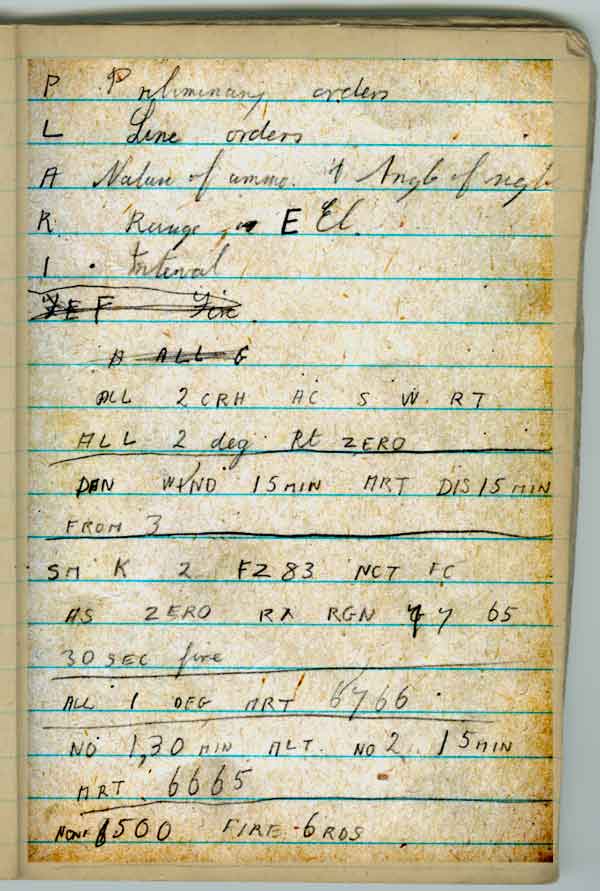 P Preliminary orders
L Line orders
A Nature of ammo. Angle of
R Range E El.
I . Interval
F Fire
A ALL G
ALL 2 CRH AC S W. RT
ALL 2 deg Rt ZERO
WIND 15 MIN MRT DIS 15 MIN
FROM 3
SM K 2 FZ 83 NCT FC
AS ZERO RX RGN 7 65
30 SEC fire
ALL 1 DEG MRT 6766
NO 1,30 MIN ALT. NO 2 15 MIN
MRT 6665
6500 FIRE 6 RDS